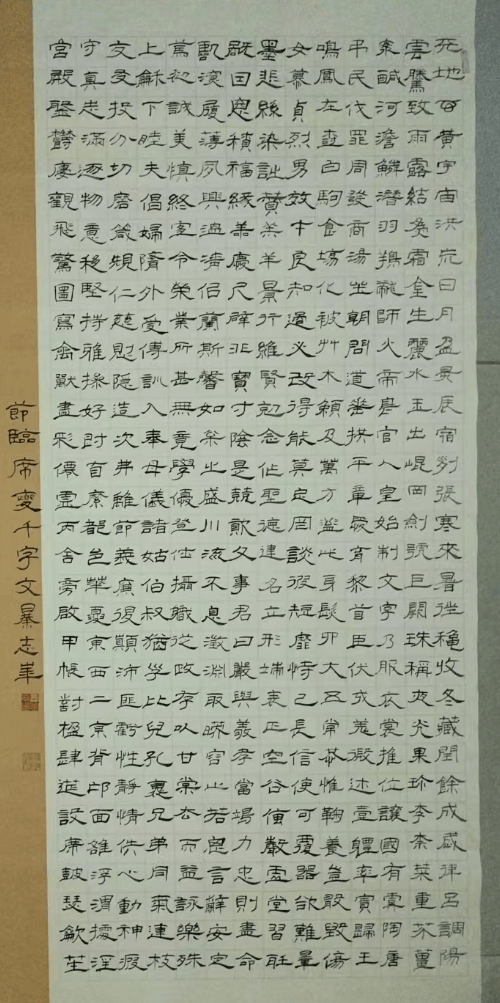 天地玄黃宇宙洪荒日月盈昃辰宿列張寒來暑往秋收冬藏閏餘成歲律呂調陽
雲騰致雨露結為霜金生麗水玉出崐岡劍號巨闕珠稱夜光果珍李柰菜重芥薑
海鹹河澹鱗潛羽翔龍師火帝鳥官人皇始制文字乃服衣裳推位讓國有虞陶唐
弔民伐罪周發商湯坐朝問道垂拱平章愛育黎首臣伏戎羌遐邇壹體率賓歸王
鳴鳳在樹白駒食場化被草木賴及萬方蓋此身髮四大五常恭惟鞠養豈敢毀傷
女慕貞烈男效才良知過必改得能莫忘罔談彼短靡恃己長信使可覆器欲難量
墨悲絲染詩讚羔羊景行維賢剋念作聖德建名立形端表正空谷傳聲虛堂習聽
禍因惡積福緣善慶尺璧非寶寸陰是競資父事君曰嚴與敬孝當竭力忠則盡命
臨深履薄夙興溫凊似蘭斯馨如松之盛川流不息澂淵取映容止若思言辭安定
篤初誠美慎終宜令榮業所甚無竟學優登仕攝職從政存以甘棠去而益詠樂殊
上和下睦夫倡婦隨外受傅訓入奉母儀諸姑伯叔猶子比兒孔懷兄弟同氣連枝
交友投分切磨箴規仁慈惻隱造次弗離節義廉退顛沛匪虧性靜情逸心動神疲
守真志滿逐物意移堅持雅操好爵自縻都邑華夏東西二京背邙面雒浮渭據涇
宮殿盤鬱樓觀飛驚圖寫禽獸畫彩僊靈丙舍旁啟甲帳對楹肆筵設席鼓瑟歙笙
節臨席夔千字文志華